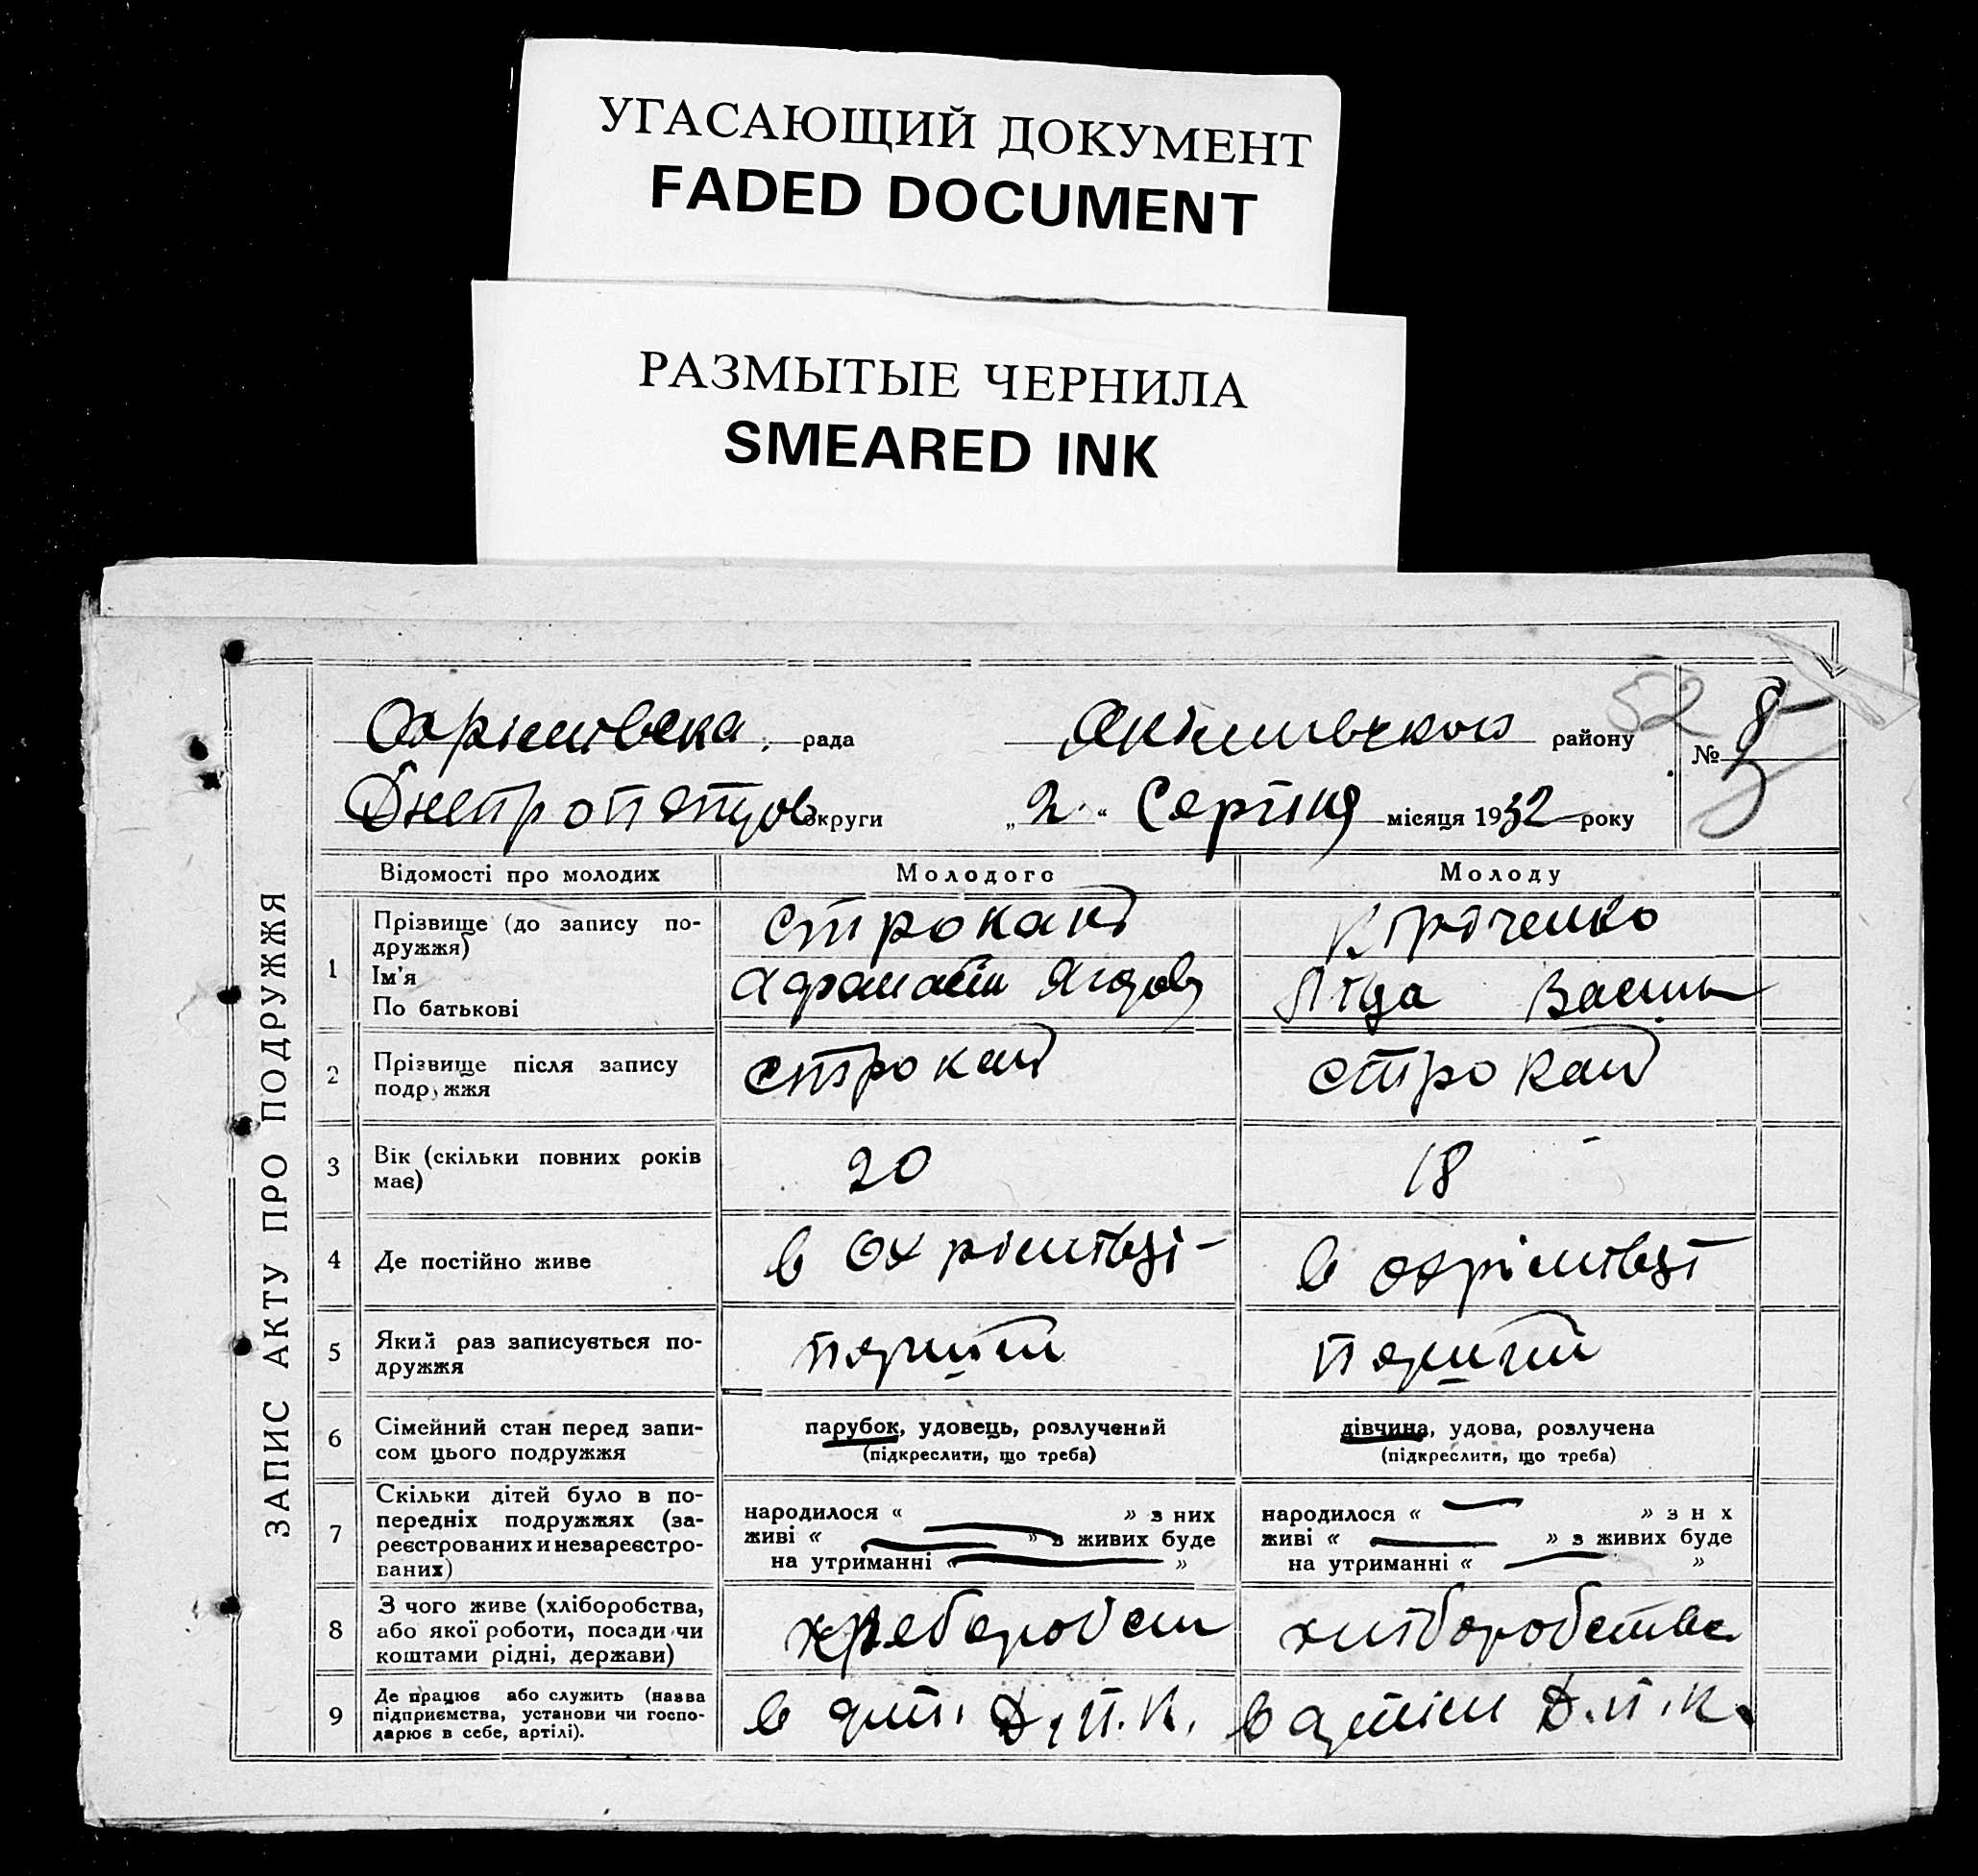 УГАСАЮЩИЙ ДОКУМЕНТ
FADED DOCUMENT
РАЗМЫТЫЕ ЧЕРНИЛА
SMEARED INK
ЗАПИС АКТУ ПРО ПОДРУЖЖЯ
Охрімівска рада Якимівского району 52 № 8
Днепропетров округи „2“ Серпня місяця 1932 року
Відомості про молодих Молодого Молоду
1 Прізвище (до запису подружжя) Строкань Кіріченко
Ім'я
По батькові
Ліда
2 Прізвище після запису подружжя Строкань Строкань
3 Вік (скільки повних років має) 20 18
4 Де постійно живе в Охрімівці в охрімівці
5 Який раз записується подружжя перший перший
6 Сімейний стан перед записом цього подружжя парубок, удовець, розлучений дівчина, удова, розлучена
(підкреслити, що треба) (підкреслити, що треба)
7 Скільки дітей було в попередніх подружжях (зареєстрованих и незареєстрованих)
народилося « » з них народилося « » з н х
живі « » з живих буде живі « » з живих буде
на утриманні « » на утриманні « »
8 З чого живе (хліборобства, або якої роботи, посади чи коштами рідні, держави) хліборобства
9 Де працює або служить (назва підприємства, установи чи господарює в себе, артілі). в арт. Д.П.К. в артілі Д.П.К.